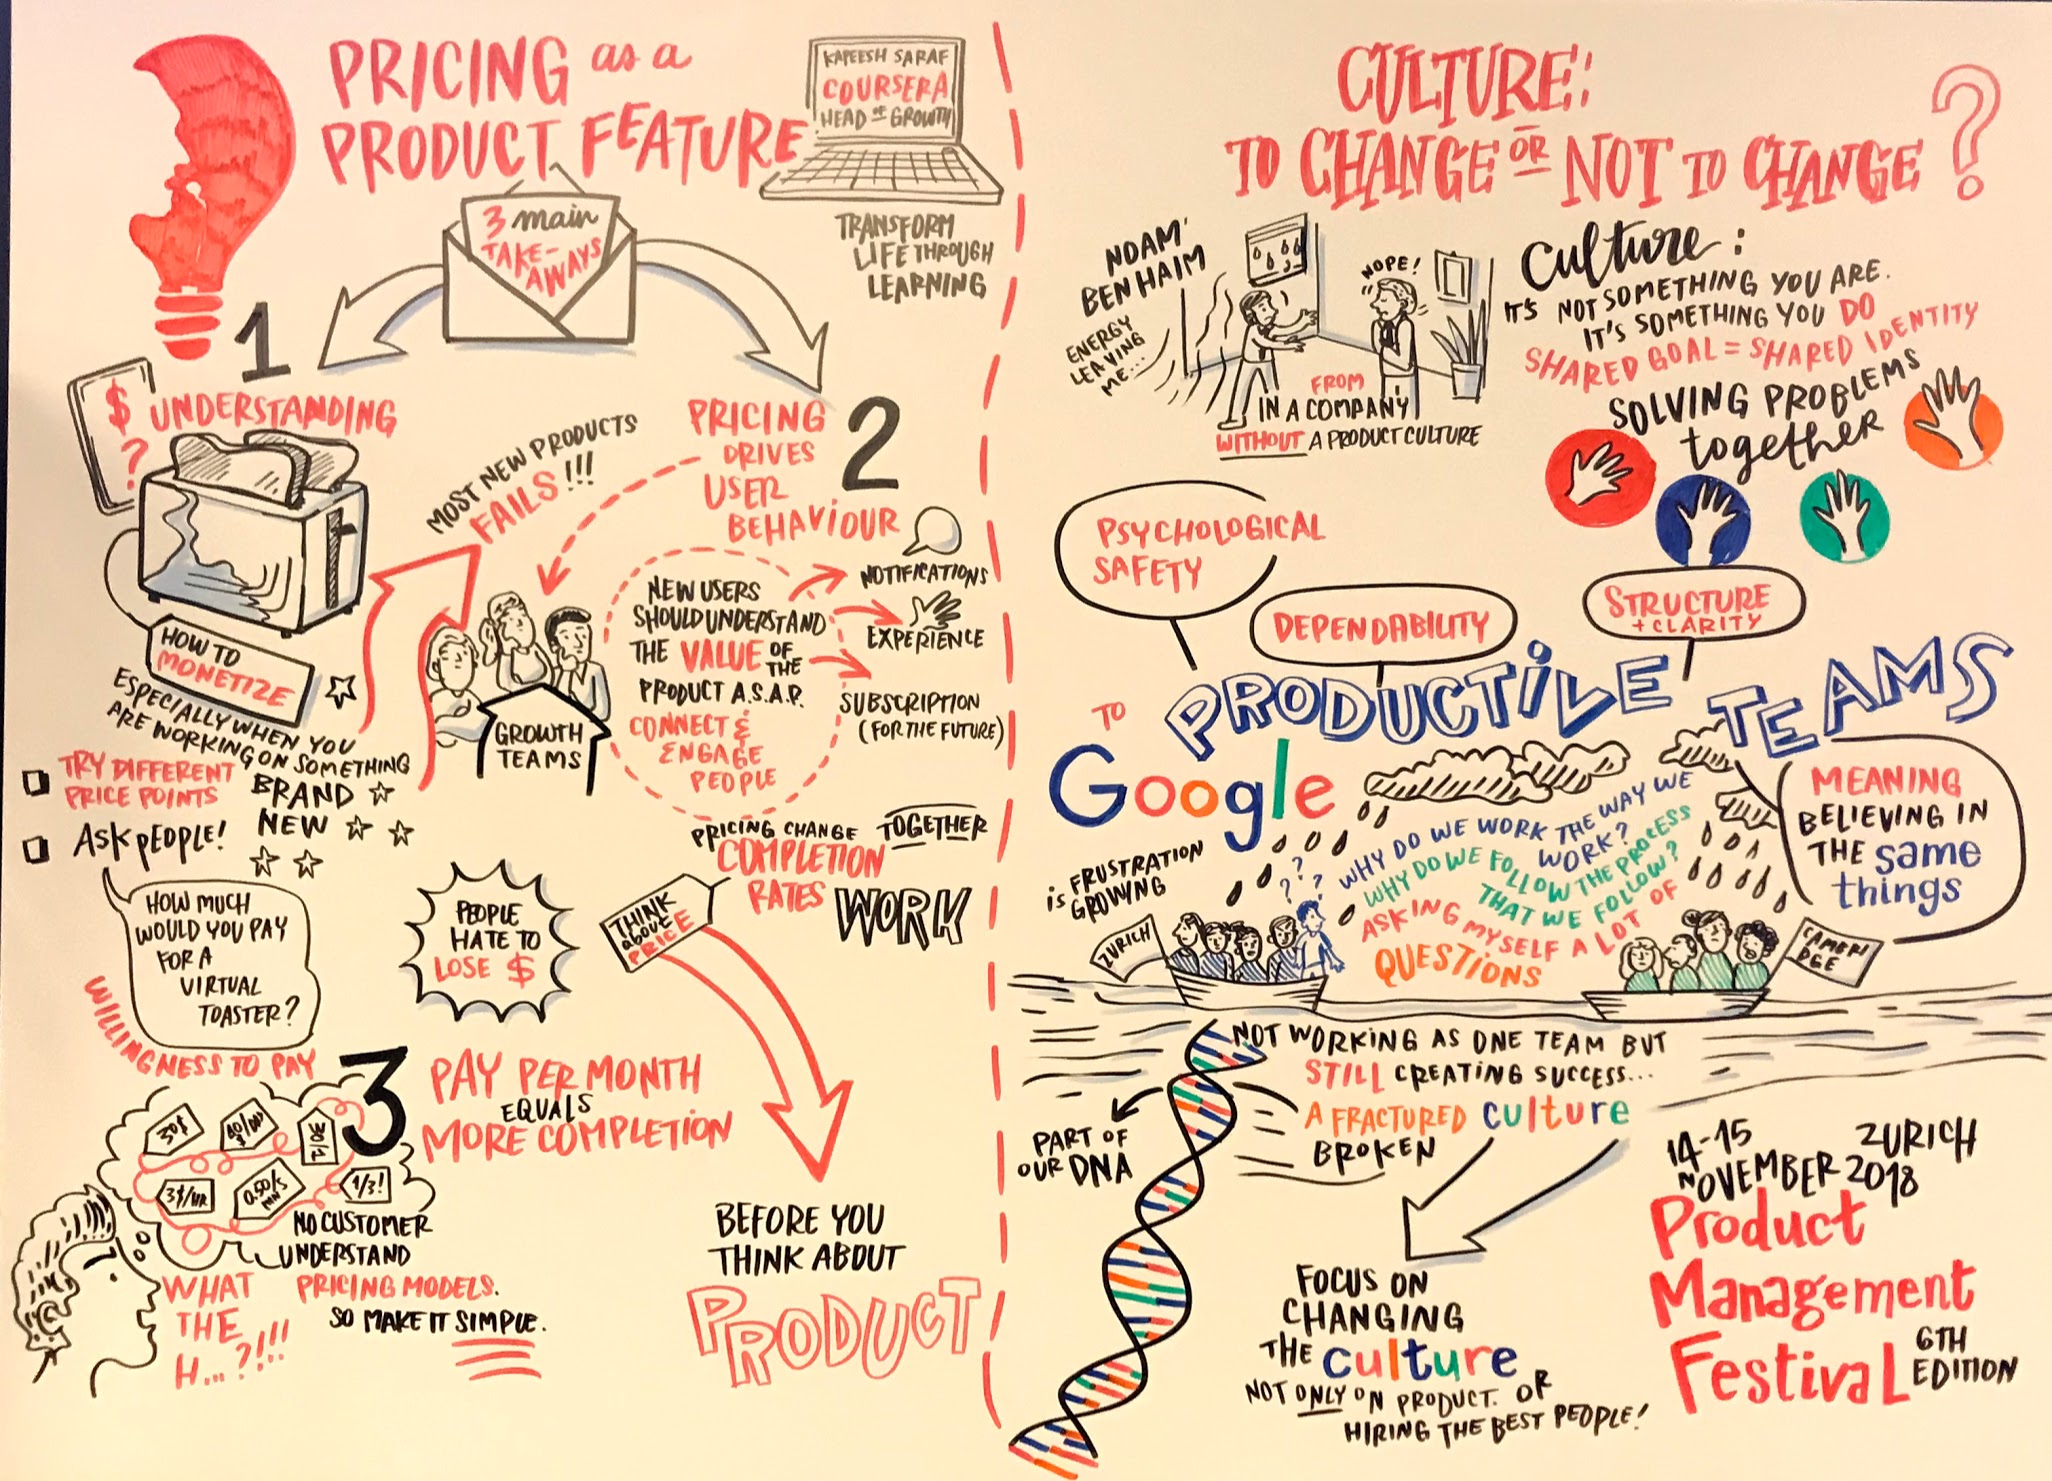 PRICING as a
PRODUCT FEATURE
KAPEESH SARAF
COURSERA
HEAD OF GROWTH
TRANSFORM
LIFE THROUGH
LEARNING
3 main
TAKE-
AWAYS
1
$
?
UNDERSTANDING
HOW TO
MONETIZE
ESPECIALLY WHEN YOU
ARE WORKING ON SOMETHING
BRAND
NEW
TRY DIFFERENT
PRICE POINTS
ASK PEOPLE!
HOW MUCH
WOULD YOU PAY
FOR A
VIRTUAL
TOASTER?
WILLINGNESS TO PAY
MOST NEW PRODUCTS
FAILS!!!
GROWTH
TEAMS
2
PRICING
DRIVES
USER
BEHAVIOUR
NEW USERS
SHOULD UNDERSTAND
THE VALUE OF THE
PRODUCT A.S.A.P.
CONNECT &
ENGAGE
PEOPLE
NOTIFICATIONS
EXPERIENCE
SUBSCRIPTION
(FOR THE FUTURE)
PRICING CHANGE
COMPLETION
RATES
TOGETHER
WORK
PEOPLE
HATE TO
LOSE $
THINK
about
PRICE
BEFORE YOU
THINK ABOUT
PRODUCT
3
PAY PER MONTH
EQUALS
MORE COMPLETION
30$
3$/HR
1/3!
NO CUSTOMER
UNDERSTAND
PRICING MODELS.
SO MAKE IT SIMPLE.
WHAT
THE
H...?!!!
CULTURE:
TO CHANGE OR NOT TO CHANGE?
NOAM
BEN HAIM
ENERGY
LEAVING
ME...
NOPE!
FROM
IN A COMPANY
WITHOUT A PRODUCT CULTURE
culture:
IT'S NOT SOMETHING YOU ARE.
IT'S SOMETHING YOU DO
SHARED GOAL = SHARED IDENTITY
SOLVING PROBLEMS
together
PSYCHOLOGICAL
SAFETY
DEPENDABILITY
STRUCTURE
+ CLARITY
TO PRODUCTIVE TEAMS
Google
MEANING
BELIEVING IN
THE same
things
FRUSTRATION
is GROWING
ZURICH
? ? ? ?
WHY DO WE WORK THE WAY WE
WORK?
WHY DO WE FOLLOW THE PROCESS
THAT WE FOLLOW?
ASKING MYSELF A LOT OF
QUESTIONS
CAMBRI
DGE
NOT WORKING AS ONE TEAM BUT
STILL CREATING SUCCESS...
A FRACTURED culture
BROKEN
PART OF
OUR DNA
FOCUS ON
CHANGING
THE culture
NOT ONLY ON PRODUCT. OR
HIRING THE BEST PEOPLE!
14-15
NOVEMBER 2018
ZURICH
Product
Management
Festival
6TH
EDITION